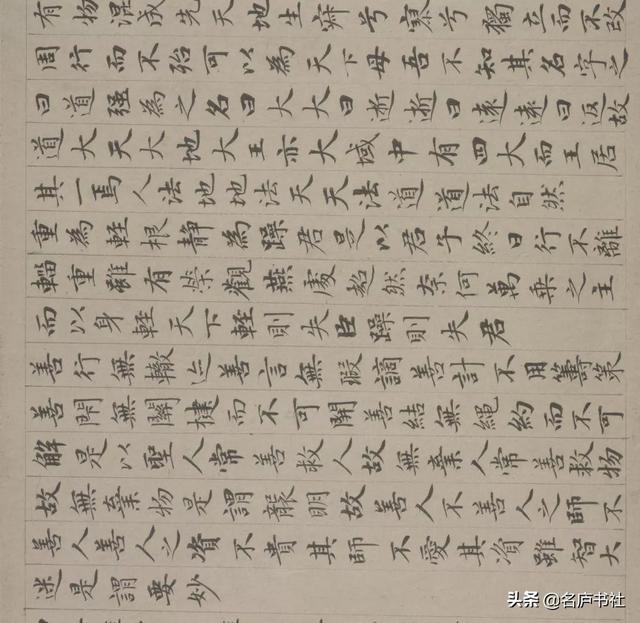 有物混成先天地生寂兮寥兮獨立而不改
周行而不殆可以為天下母吾不知其名字之
曰道强為之名曰大大曰逝逝曰遠遠曰返故
道大天大地大王亦大域中有四大而王居
其一焉人法地地法天天法道道法自然
重為輕根靜為躁君是以君子終日行不離
輜重雖有榮觀燕處超然奈何萬乗之主
而以身輕天下輕則失臣躁則失君
善行無轍迹善言無瑕謫善計不用籌策
善閇無關楗而不可開善結無繩約而不可
解是以聖人常善救人故無棄人常善救物
故無棄物是謂襲明故善人不善人之師不
善人善人之資不貴其師不愛其資雖智大
迷是謂要妙
头条 @名庐书社